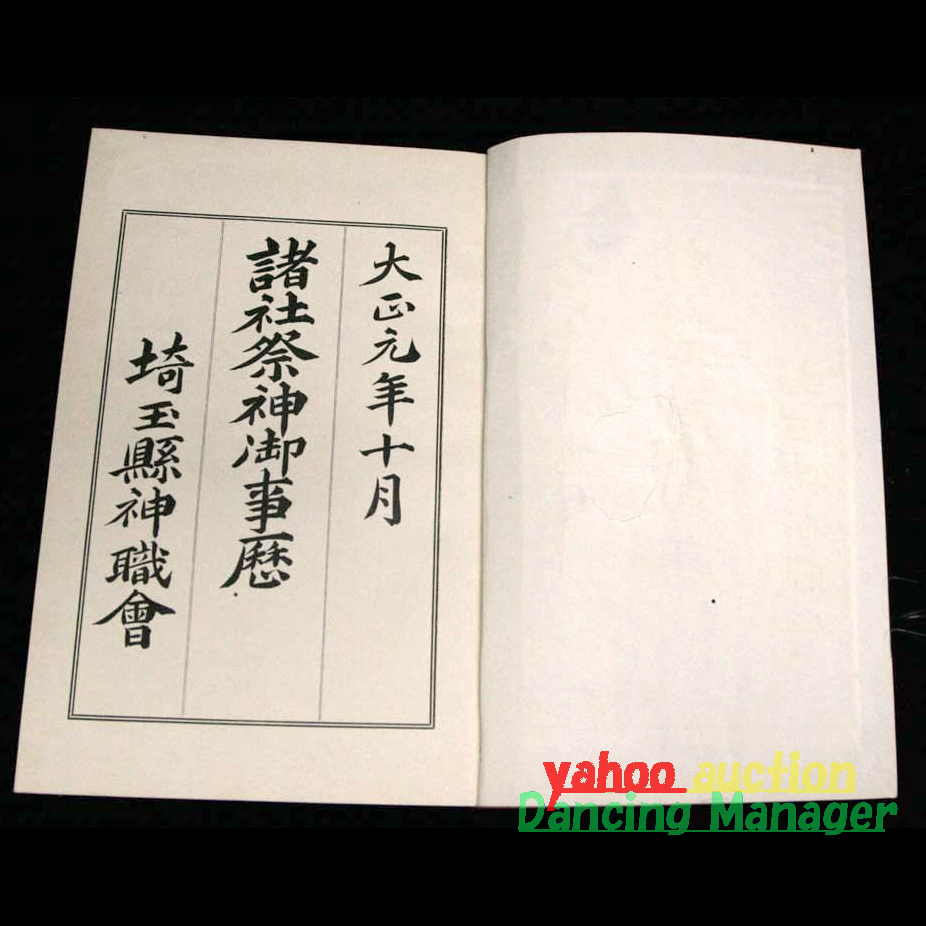 大正元年十月
諸社祭神御事歴
埼玉縣神職會
yahoo auction
Dancing Manager